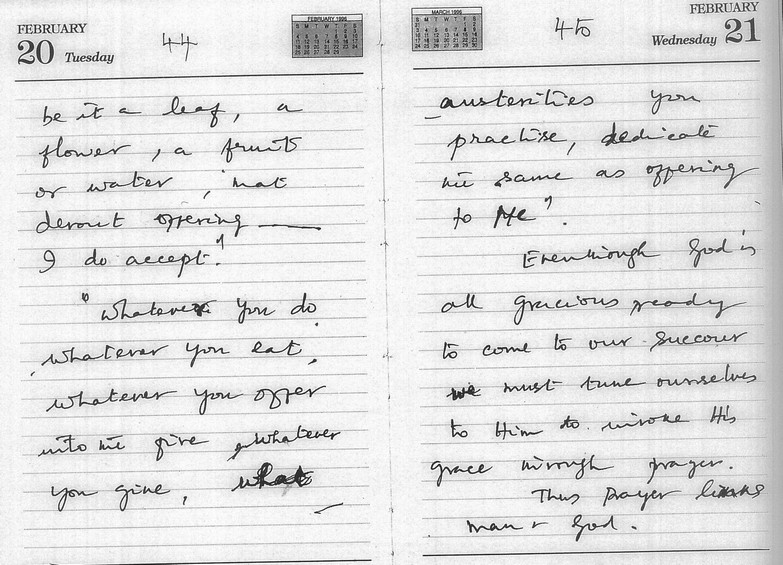 FEBRUARY
20 Tuesday
44
FEBRUARY 1996
be it a leaf, a
flower, a fruit
or water, that
devout offering —
I do accept."
"whatever you do
whatever you eat,
whatever you offer
into the fire, whatever
you give, what
MARCH 1996
45
FEBRUARY
Wednesday 21
austerities you
practise, dedicate
the same as offering
to Me".
Eventhough God is
all gracious ready
to come to our succour
we must tune ourselves
to Him to invoke His
grace through prayer.
Thus prayer links
man & God.